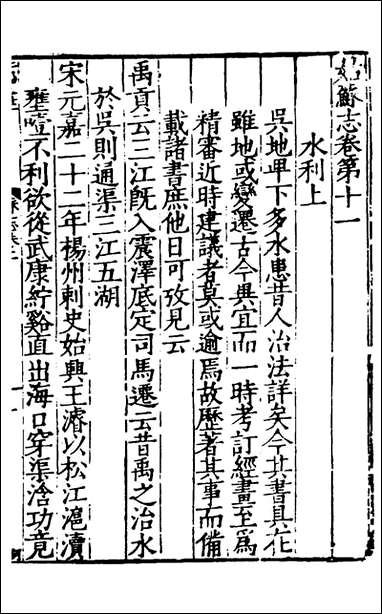 姑蘇志卷第十一
水利上
吳地甲下多水患昔人治法詳矣今其書具在
雖地或變遷古今異宜而一時考訂經畫至為
精審近時建議者莫或逾焉故歷著其事而備
載諸書庶他日可攷見云
禹貢云三江旣入震澤底定司馬遷云昔禹之治水
於吳則通渠三江五湖
宋元嘉二十二年楊州刺史始興王濬以松江滬瀆
壅噎不利欲從武康紵谿直出海口穿渠浛功竟